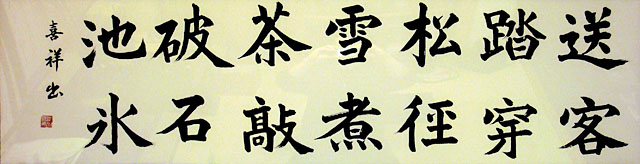 送客
踏穿
松徑
雪煮
茶敲
破石
池氷
喜祥书